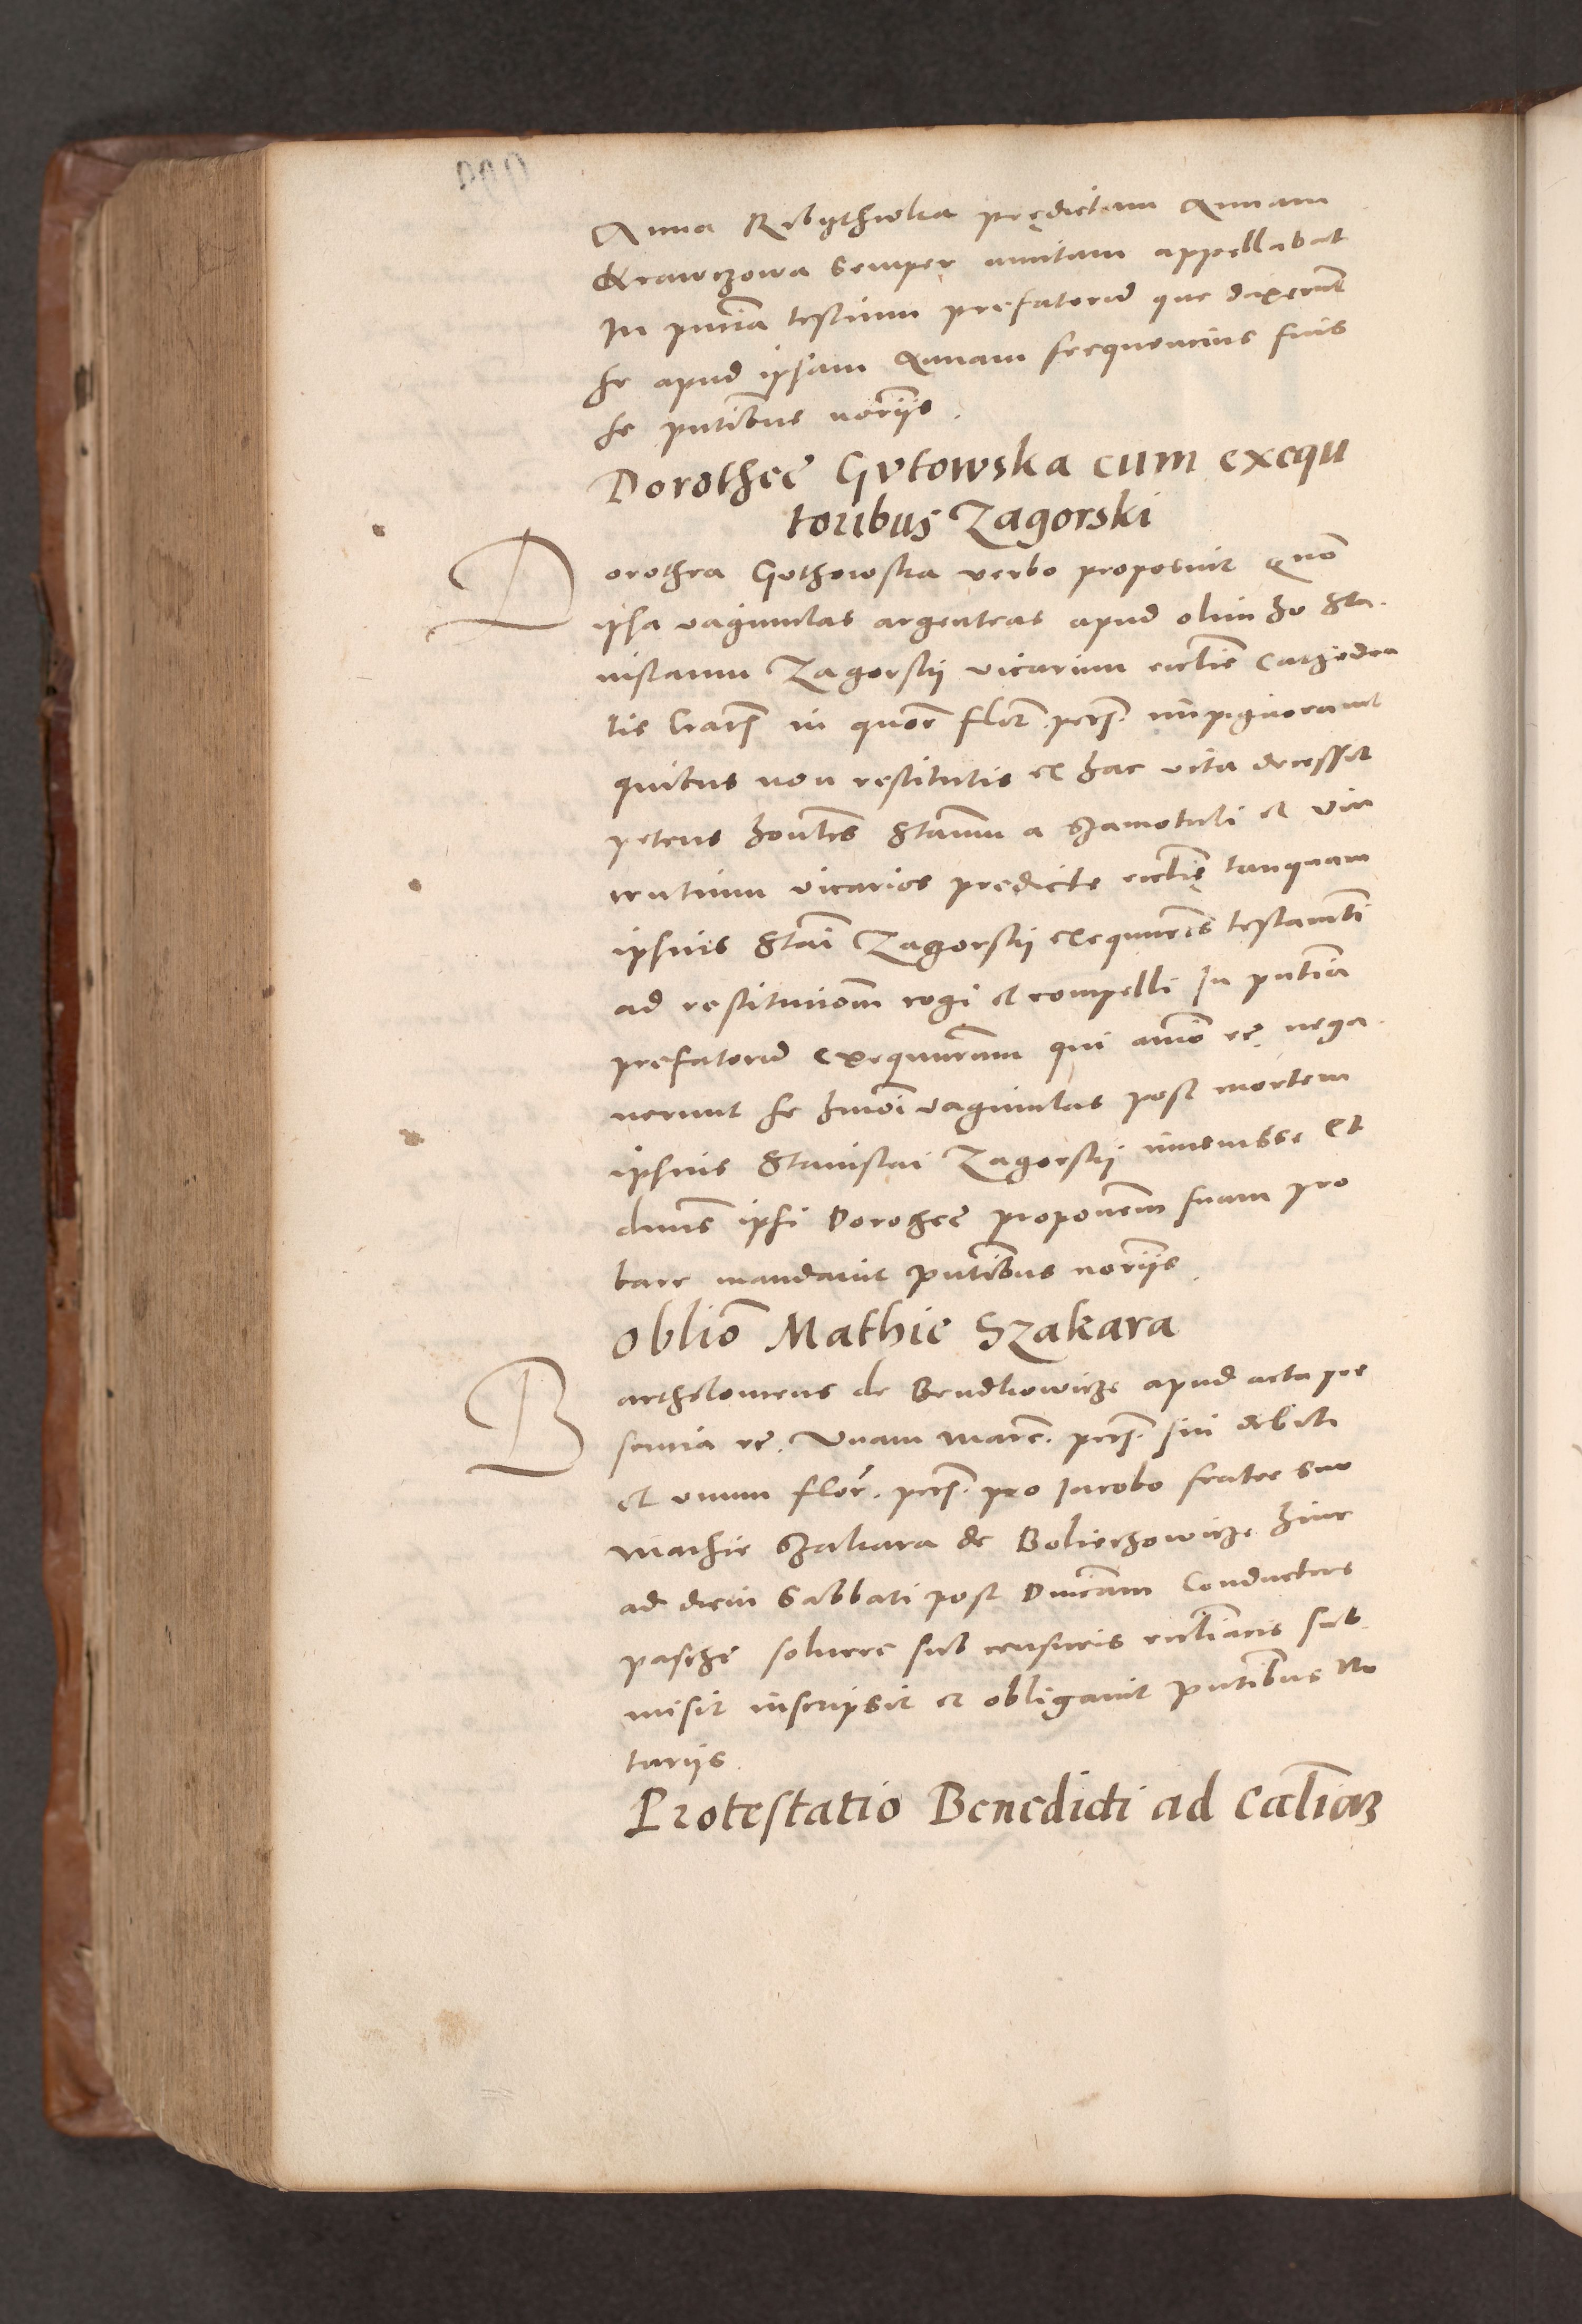 Anna Ribythwka prędictam Annam
Krawczowa semper amitam appellabat
In pn̄tia testium prefatorum que dixerūt
se apud ipsam Annam frequencius fuis
se pn̄tibus nor̄iis.
Dorotheę Gutowska cum exequ
toribus Zagorski
Dorothea Gothowska verbo proposuit quō
ipsa vaginulas argenteas apud olim ho Sta
nislaum Zagorskij vicarium eccl̄ie Cathedra
lis in flor̄ impignoravit
quibus non restitutis ex hac vita decessit
petens hon̄les Stan̄um a Szamotuli et Vin
centium vicarios predicte eccl̄ię tanquam
ipsius Stan̄i Zagorskij exequut̄es testam̄ti
ad restitutiōm cogi et compelli In pn̄tia
prefatorum exequut̄um qui an̄io rę nega
verunt se hm̄oi vaginulas post mortem
ipsius Stanislai Zagorskij invenisse Et
dn̄us ipsi Dorotheę propon̄em suam pro
bare mandavit pn̄tibus nor̄iis
Obliō Mathie Szakara
Bartholomeus de Bendkowicze apud acta pre
sentia rę. Unam marc̄. sui debiti
et unum flor̄. pro Iacobo fratre suo
Mathie Szakara de Bolierzowicze hinc
ad diem Sabbati post Dn̄icam Conductus
pasche solvere sub censuris eccl̄iacis sub
misit inscripsit et obligavit pn̄tibus No
tariis.
Protestatio Benedicti ad